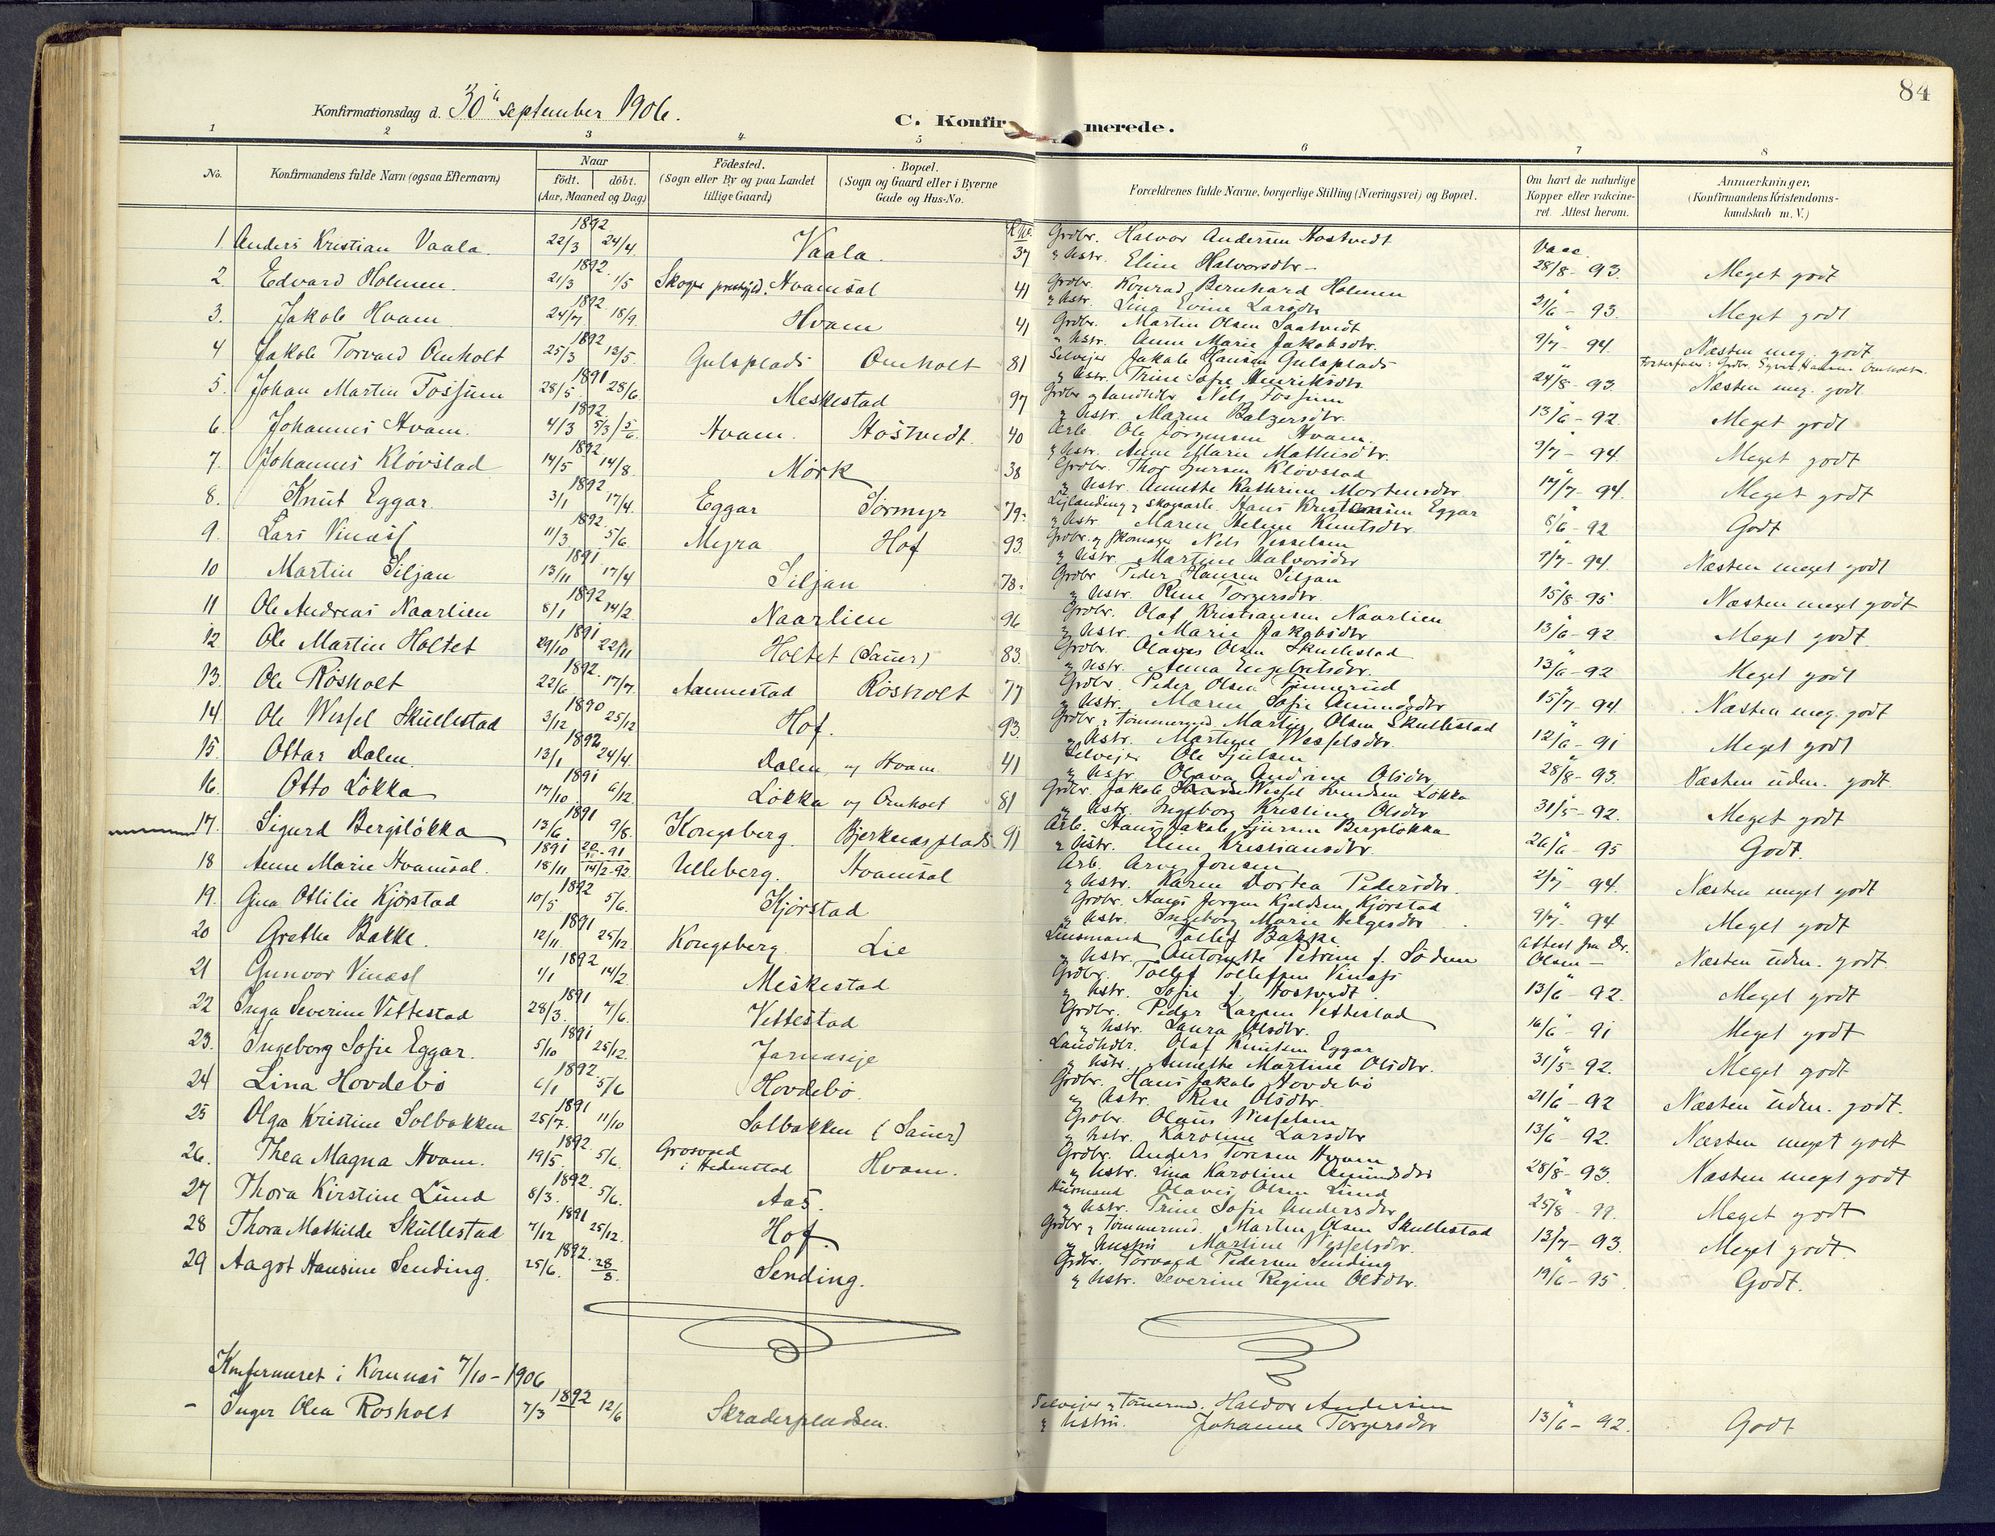 84
Konfirmationsdag d. 30te september 1906.
C. Konfirmerede.
1 2 3 4 5 6 7 8
No. Konfirmandens fulde Navn (ogsaa Efternavn) Naar født. døbt. (Aar, Maaned og Dag) Födested. (Sogn eller By og paa Landet tillige Gaard) Bopæl. (Sogn og Gaard eller i Byerne Gade og Hus-No. Forældrenes fulde Navne, borgerlige Stilling (Næringsvei) og Bopæl. Om havt de naturlige Kopper eller vakcineret. Attest herom. Anmærkninger. (Konfirmandens Kristendomskundskab m. V.)
1 Anders Kristian Vaala. 1892 22/3 24/4 Vaala. 37 Grdbr. Halvor Andersen Hostvedt
" Hstr. Eline Halvorsdtr - Vacc. 28/8 - 93. Meget godt
2 Edvard Holmen. 1892. 21/3 1/5 Skoger prestgjld. Hvamsal 41 Grdbr. Konrad Bernhard Holmen
" Hstr. Lina Evine Larsdtr " 21/6 - 93. Meget godt
3. Jakob Hvam 1892 24/7 18/9 Hvam 41 Grdbr. Martin Olsen Saatvedt
" Hstr. Anne Marie Jakobsdtr. " 9/7 - 94. Næsten meg. godt
4 Jakob Torvald Omholt 1892 25/3 13/5 Gulsplads Omholt 81 Selvejer Jakob Hansen Gulsplads
" Hstr. Trine Sofie Henriksdtr " 24/8 - 93. Næsten meg. godt.
5. Johan Martin Fossum 1891 28/5. 28/6. Meskestad 97 Grdbr og Landhdlr Nels Fossum
" Hstr. Maren Balzersdtr. 13/6 - 92. Meget godt
6. Johannes Hvam. 1892. 4/3 5/3 5/6 Hvam. Hostvedt. 40 Arb. Ole Jørgensen Hvam.
" Hstr. Anne Marie Mathisdtr. 9/7 - 94. Meget godt
7. Johannes Kløvstad 1892 14/5 14/8. Mørk 38 Grdbr. Thor Jursen Kløvstad
" Hstr. Annette Kathrine Mortensdtr " 17/7 - 94. Meget godt
8. Knut Eggar. 1892 3/1 17/4. Eggar Sørmyr 79. Hans Kristiansen Eggar
" Hstr. Maren Helene Knutsdtr 8/6 - 92 Godt
9. Lars Vinæss 1892. 11/3 5/6. Myra Hof 93. Grdbr. og Skomager Nels Vesselsen
" Hstr. Martine Halvorsdtr " 9/7 - 94. Næsten meget godt
10 Martin Siljan 1891 13/11 17/4 Siljan 78. Grdbr Peder Hansen Siljan
" Hstr. Rene Torgersdtr. " 15/8 - 95 Næsten meget godt
11 Ole Andreas Naarlien 1892. 8/1 14/2. Naarlien 96 Grdbr. Olaf Kristiansen Naarlien
" Hstr. Marie Jakobsdtr 13/6 - 92. Meget godt.
12 Ole Martin Holtet 1891 29/10 22/11 Holtet (Sauer) 83. Grdbr. Olaves Olsen Skullestad
" Hstr. Anna Engebretsdtr. " 13/6 - 92 Meget godt
13. Ole Rösholt 1892. 22/6 17/7. Aannestad Rösholt 77 Grdbr. Peder Olsen Tinnerud
" Hstr. Maren Sofie Amundsdtr " 15/7 - 94 Næsten meg. godt
14. Ole Wessel Skullestad 1890 3/12 25/12 Hof. 93. Grdbr. " Tømmermd. Martin Olsen Skullestad
" Hstr. Martine Wesselsdtr. " 12/6 - 91 Meget godt
15. Ottar Dalen. 1892 13/1 24/4. Dalen og Hvam 41 Selvejer Ole
" Hstr. Olava Andrine Olsdtr. " 28/8 - 93. Næsten udm. godt
16. Otto Løkka 1891 17/10 6/12. Løkka og Omholt 81 Grdbr. Jakob Wessel Løkka
" Hstr. Ingeborg Kristine Olsdtr " 31/5 - 92. Meget godt
17. Sigurd Bergsløkka 1891 13/6. 9/8. Kongsberg. Bjerknæsplads 91 Arb. Hans Jakob Bergsløkka
" Hstr. Eline Kristiansdtr. " 26/6 - 95 Godt.
18 Anne Marie Hvamsal. 1891 18/11 20/11 - 91 14/2 - 92. Ulleberg. Hvamsal Arb. Arve Jonsen
" Hstr. Karen Dortea Pedersdtr. " 2/7 - 94. Næsten meget godt
19. Gina Ottilie Kjørstad 1892 10/5 5/6. Kjørstad Grdbr. Hans Jørgen Kjeldsen Kjørstad
" Hstr. Ingeborg Marie Helgesdtr " 9/7. - 94 Meget godt
20 Grethe Bakke. 1891 12/11. 25/12. Kongsberg. Lie Lensmand Tollef Bakke
" Hstr. Antonette Petrine f. Sødem Attest fra Dr. Olsen - Næsten udm. godt
21 Gunvor Vinæss 1892 4/1 14/2. Meskestad Grdbr. Tollef Tollefsen Vinæss
" Hstr. Sofie f. Hostvedt. " 13/6 - 92. Meget godt
22 Inga Severine Vittestad 1891 28/3. 7/6. Vittestad Grdbr. Peder Larsen Vittestad
" Hstr. Laura Olsdtr. " 16/6 - 91 Meget godt
23. Ingeborg Sofie Eggar. 1891 5/10 25/12. Jarnæseje Landhdlr. Olaf Knutsen Eggar
" Hstr. Annette Martine Olsdtr. " 31/5 - 92. Meget godt
24 Lina Hovdebö 1892. 6/1 5/6 Hovdebö. Grdbr. Hans Jakob Hovdebö
" Hstr. Rese Olsdtr. " 21/6 - 92 Næsten udm. godt.
25 Olga Kristine Solbakken 1891 25/7. 11/10 Solbakken (Sauer) Grdbr. Olaus Wesselsen
" Hstr. Karoline Larsdtr 13/6 - 92. Næsten meget godt
26. Thea Magna Hvam. 1892 19/5. 5/6. Grosvold i Hedenstad Hvam. Grdbr. Anders Toresen Hvam
" Hstr. Lina Karoline Amundsdtr " 28/8 - 93. Næsten meget godt
27 Thora Kirstine Lund 1892. 8/3. 5/6. Aas. Husmand Olaves Olsen Lund
" Hstr. Trine Sofie Andersdtr " 25/8 - Meget godt
28 Thora Mathilde Skullestad 1891 7/12 25/12. Hof. Grdbr " Tømmermd. Marten Olsen Skullestad
" Hustru Martine Vesselsdtr. 13/7 - 93. Meget godt
29 Aagot Hansine Sending. 1892. 25/6. 28/8. Sending. Grdbr. Torvald Pedersen Sending
" Hstr. Severine Regine Olsdtr. " 19/6 - 95 Godt.
Konfirmeret i Komnæs 7/10 - 1906
- Inger Olea Rosholt 1892 7/3 12/6 Skraderpladsen. Selvejer " Tømermd. Haldor Andersen
" Hstru. Johanne Torgersdtr " 13/6 - 92. Godt